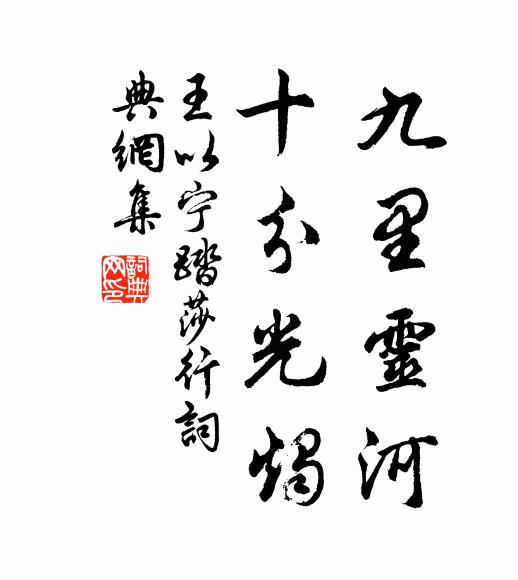 九里靈河
十分光燭
王以宁踏莎行詞
典網集
詞典网印